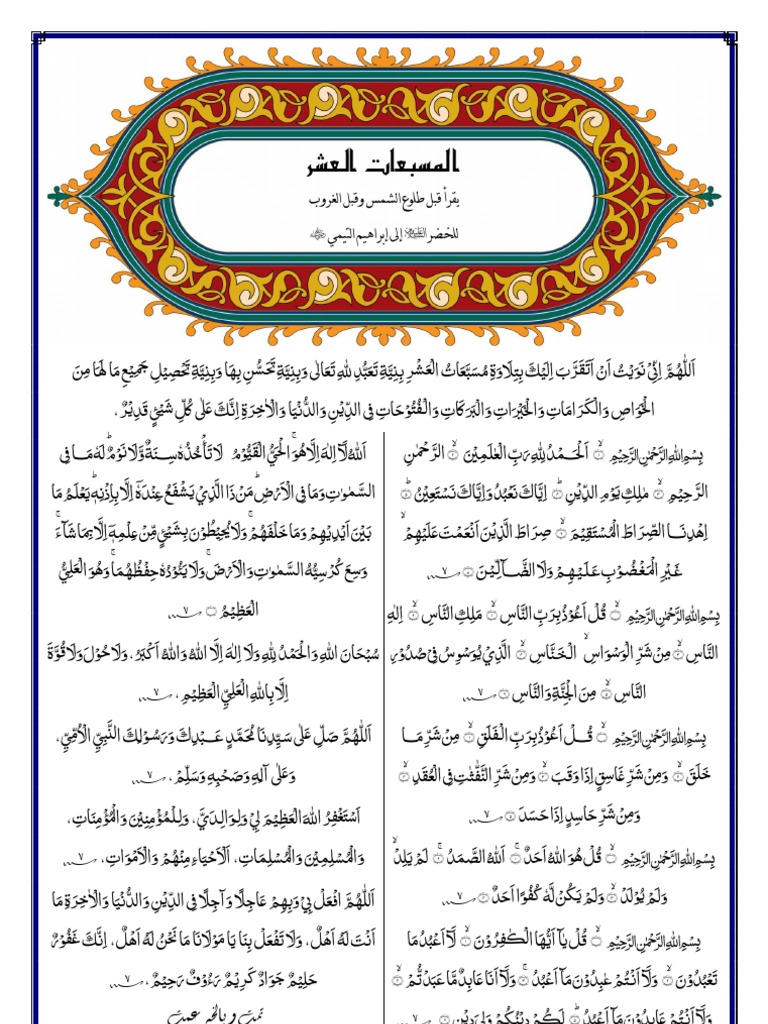 المسبعات العشر
يقرأ قبل طلوع الشمس وقبل الغروب
للخضر إلى إبراهيم التيمي
اَللّٰهُمَّ اِنِّيْ نَوَيْتُ اَنْ اَتَقَرَّبَ اِلَيْكَ بِتِلَاوَةِ مُسَبَّعَاتُ الْعَشْرِ بِنِيَّةِ تَعَبُّدِ لِلّٰهِ تَعَالٰى وَبِنِيَّةِ تَحَسُّنِ بِهَا وَبِنِيَّةِ تَحْصِيْلِ جَمِيْعِ مَا لَهَا مِنَ
الْخَوَاصِ وَالْكَرَامَاتِ وَالْخَيْرَاتِ وَالْبَرَكَاتِ وَالْفُتُوْحَاتِ فِي الدِّيْنِ وَالدُّنْيَا وَالْاٰخِرَةِ اِنَّكَ عَلٰى كُلِّ شَيْئٍ قَدِيْرٌ.
بِسْمِ اللهِ الرَّحْمٰنِ الرَّحِيْمِ ۝ اَلْحَمْدُ لِلّٰهِ رَبِّ الْعٰلَمِيْنَ ۝ الرَّحْمٰنِ
الرَّحِيْمِ ۝ مٰلِكِ يَوْمِ الدِّيْنِ ۝ اِيَّاكَ نَعْبُدُ وَاِيَّاكَ نَسْتَعِيْنُ ۝
اِهْدِنَا الصِّرَاطَ الْمُسْتَقِيْمَ ۝ صِرَاطَ الَّذِيْنَ اَنْعَمْتَ عَلَيْهِمْ
غَيْرِ الْمَغْضُوْبِ عَلَيْهِمْ وَلَا الضَّآلِّيْنَ ۝ ٧
بِسْمِ اللهِ الرَّحْمٰنِ الرَّحِيْمِ ۝ قُلْ اَعُوْذُ بِرَبِّ النَّاسِ ۝ مَلِكِ النَّاسِ ۝ اِلٰهِ
النَّاسِ ۝ مِنْ شَرِّ الْوَسْوَاسِ الْخَنَّاسِ ۝ الَّذِيْ يُوَسْوِسُ فِيْ صُدُوْرِ
النَّاسِ ۝ مِنَ الْجِنَّةِ وَالنَّاسِ ۝ ٧
بِسْمِ اللهِ الرَّحْمٰنِ الرَّحِيْمِ ۝ قُلْ اَعُوْذُ بِرَبِّ الْفَلَقِ ۝ مِنْ شَرِّ مَا
خَلَقَ ۝ وَمِنْ شَرِّ غَاسِقٍ اِذَا وَقَبَ ۝ وَمِنْ شَرِّ النَّفّٰثٰتِ فِي الْعُقَدِ ۝
وَمِنْ شَرِّ حَاسِدٍ اِذَا حَسَدَ ۝ ٧
بِسْمِ اللهِ الرَّحْمٰنِ الرَّحِيْمِ ۝ قُلْ هُوَ اللهُ اَحَدٌ ۝ اَللهُ الصَّمَدُ ۝ لَمْ يَلِدْ
وَلَمْ يُوْلَدْ ۝ وَلَمْ يَكُنْ لَّهٗ كُفُوًا اَحَدٌ ۝ ٧
بِسْمِ اللهِ الرَّحْمٰنِ الرَّحِيْمِ ۝ قُلْ يٰٓاَيُّهَا الْكٰفِرُوْنَ ۝ لَآ اَعْبُدُ مَا
تَعْبُدُوْنَ ۝ وَلَآ اَنْتُمْ عٰبِدُوْنَ مَآ اَعْبُدُ ۝ وَلَآ اَنَا عَابِدٌ مَّا عَبَدْتُّمْ ۝
وَلَآ اَنْتُمْ عَابِدُوْنَ مَآ اَعْبُدُ ۝ لَكُمْ دِيْنُكُمْ وَلِيَ دِيْنِ ۝ ٧
اَللهُ لَآ اِلٰهَ اِلَّا هُوَ الْحَيُّ الْقَيُّوْمُ لَا تَأْخُذُهٗ سِنَةٌ وَّلَا نَوْمٌ لَهٗ مَا فِي
السَّمٰوٰتِ وَمَا فِي الْاَرْضِ مَنْ ذَا الَّذِيْ يَشْفَعُ عِنْدَهٗٓ اِلَّا بِاِذْنِهٖ يَعْلَمُ مَا
بَيْنَ اَيْدِيْهِمْ وَمَا خَلْفَهُمْ وَلَا يُحِيْطُوْنَ بِشَيْئٍ مِّنْ عِلْمِهٖٓ اِلَّا بِمَا شَآءَ
وَسِعَ كُرْسِيُّهُ السَّمٰوٰتِ وَالْاَرْضَ وَلَا يَئُوْدُهٗ حِفْظُهُمَا وَهُوَ الْعَلِيُّ
الْعَظِيْمُ ۝ ٧
سُبْحَانَ اللهِ وَالْحَمْدُ لِلّٰهِ وَلَا اِلٰهَ اِلَّا اللهُ وَاللهُ اَكْبَرُ، وَلَا حَوْلَ وَلَا قُوَّةَ
اِلَّا بِاللهِ الْعَلِيِّ الْعَظِيْمِ، ٧
اَللّٰهُمَّ صَلِّ عَلٰى سَيِّدِنَا مُحَمَّدٍ عَبْدِكَ وَرَسُوْلِكَ النَّبِيِّ الْاُمِّيِّ،
وَعَلٰى آلِهِ وَصَحْبِهِ وَسَلِّمْ، ٧
اَسْتَغْفِرُ اللهَ الْعَظِيْمَ لِيْ وَلِوَالِدَيَّ، وَلِلْمُؤْمِنِيْنَ وَالْمُؤْمِنَاتِ،
وَالْمُسْلِمِيْنَ وَالْمُسْلِمَاتِ، اَلْاَحْيَاءِ مِنْهُمْ وَالْاَمْوَاتِ، ٧
اَللّٰهُمَّ افْعَلْ بِيْ وَبِهِمْ عَاجِلًا وَآجِلًا فِي الدِّيْنِ وَالدُّنْيَا وَالْاٰخِرَةِ مَا
اَنْتَ لَهُ اَهْلٌ، وَلَا تَفْعَلْ بِنَا يَا مَوْلَانَا مَا نَحْنُ لَهُ اَهْلٌ، اِنَّكَ غَفُوْرٌ
حَلِيْمٌ جَوَادٌ كَرِيْمٌ رَءُوْفٌ رَحِيْمٌ، ٧
تمت وبالخير عمت